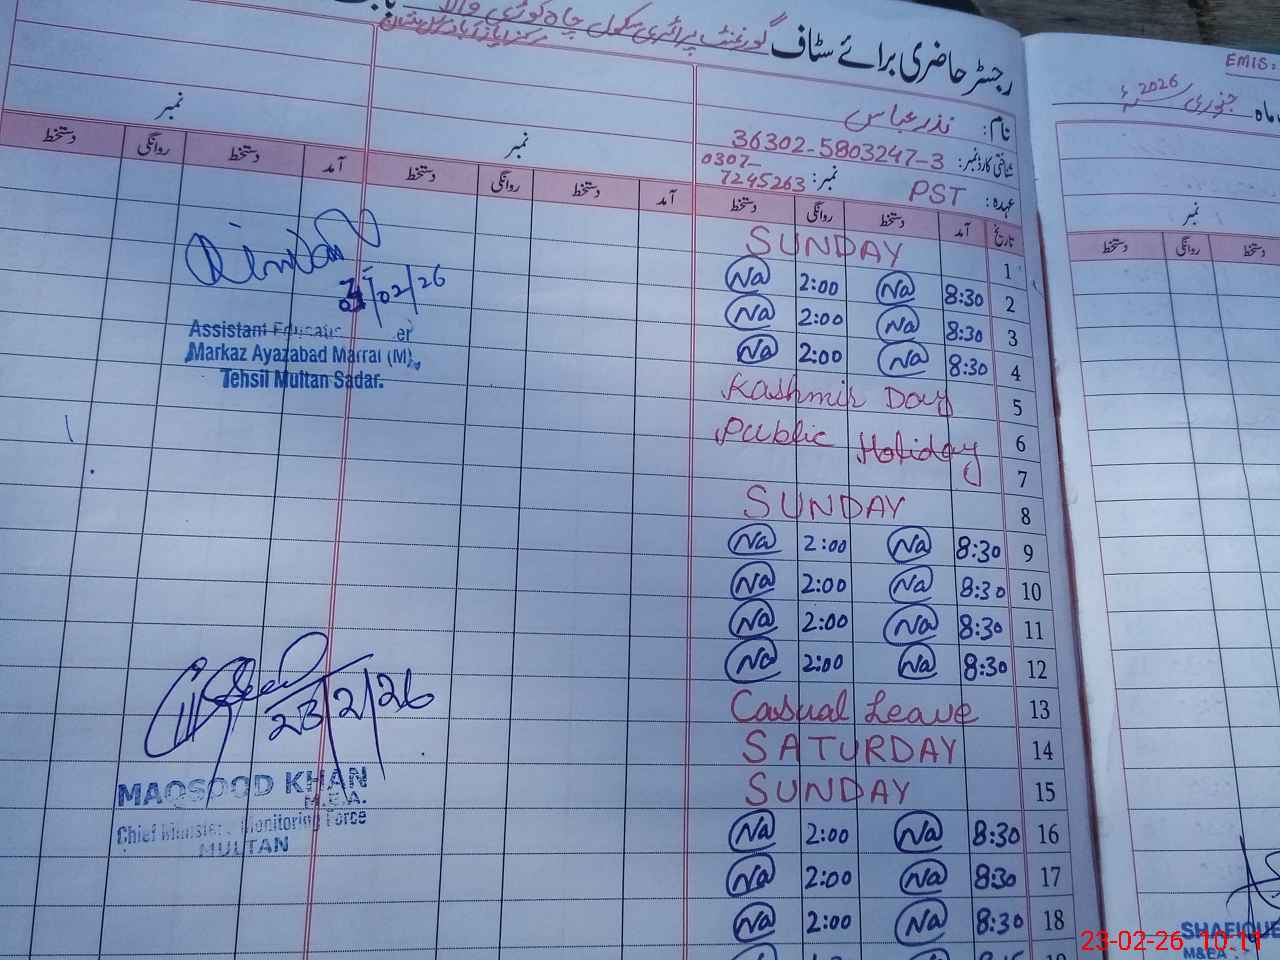 رجسٹر حاضری برائے سٹاف گورنمنٹ پرائمری سکول چاہ کوڑی والا
مرکز ایاز آباد مڑل ملتان
نام: نذر عباس
شناختی کارڈ نمبر: 36302-5803247-3
عہدہ: PST نمبر: 0307-7245263
نمبر
نمبر
تاریخ آمد دستخط روانگی دستخط آمد دستخط روانگی دستخط آمد دستخط روانگی دستخط
1 SUNDAY
2 8:30 Na 2:00 Na
3 8:30 Na 2:00 Na
4 8:30 Na 2:00 Na
5 Kashmir Day
6 Public Holiday
7
8 SUNDAY
9 8:30 Na 2:00 Na
10 8:30 Na 2:00 Na
11 8:30 Na 2:00 Na
12 8:30 Na 2:00 Na
13 Casual Leave
14 SATURDAY
15 SUNDAY
16 8:30 Na 2:00 Na
17 8:30 Na 2:00 Na
18 8:30 Na 2:00 Na
19
/02/26
Assistant
Markaz Ayazabad Marral (M),
Tehsil Multan Sadar.
23/2/26
MAQSOOD KHAN
M.E.A.
Chief Minister, Monitoring Force
MULTAN
EMIS:
ماہ جنوری 2026ء
نمبر
دستخط روانگی دستخط
SHAFIQUE
M&EA
23-02-26 10:11